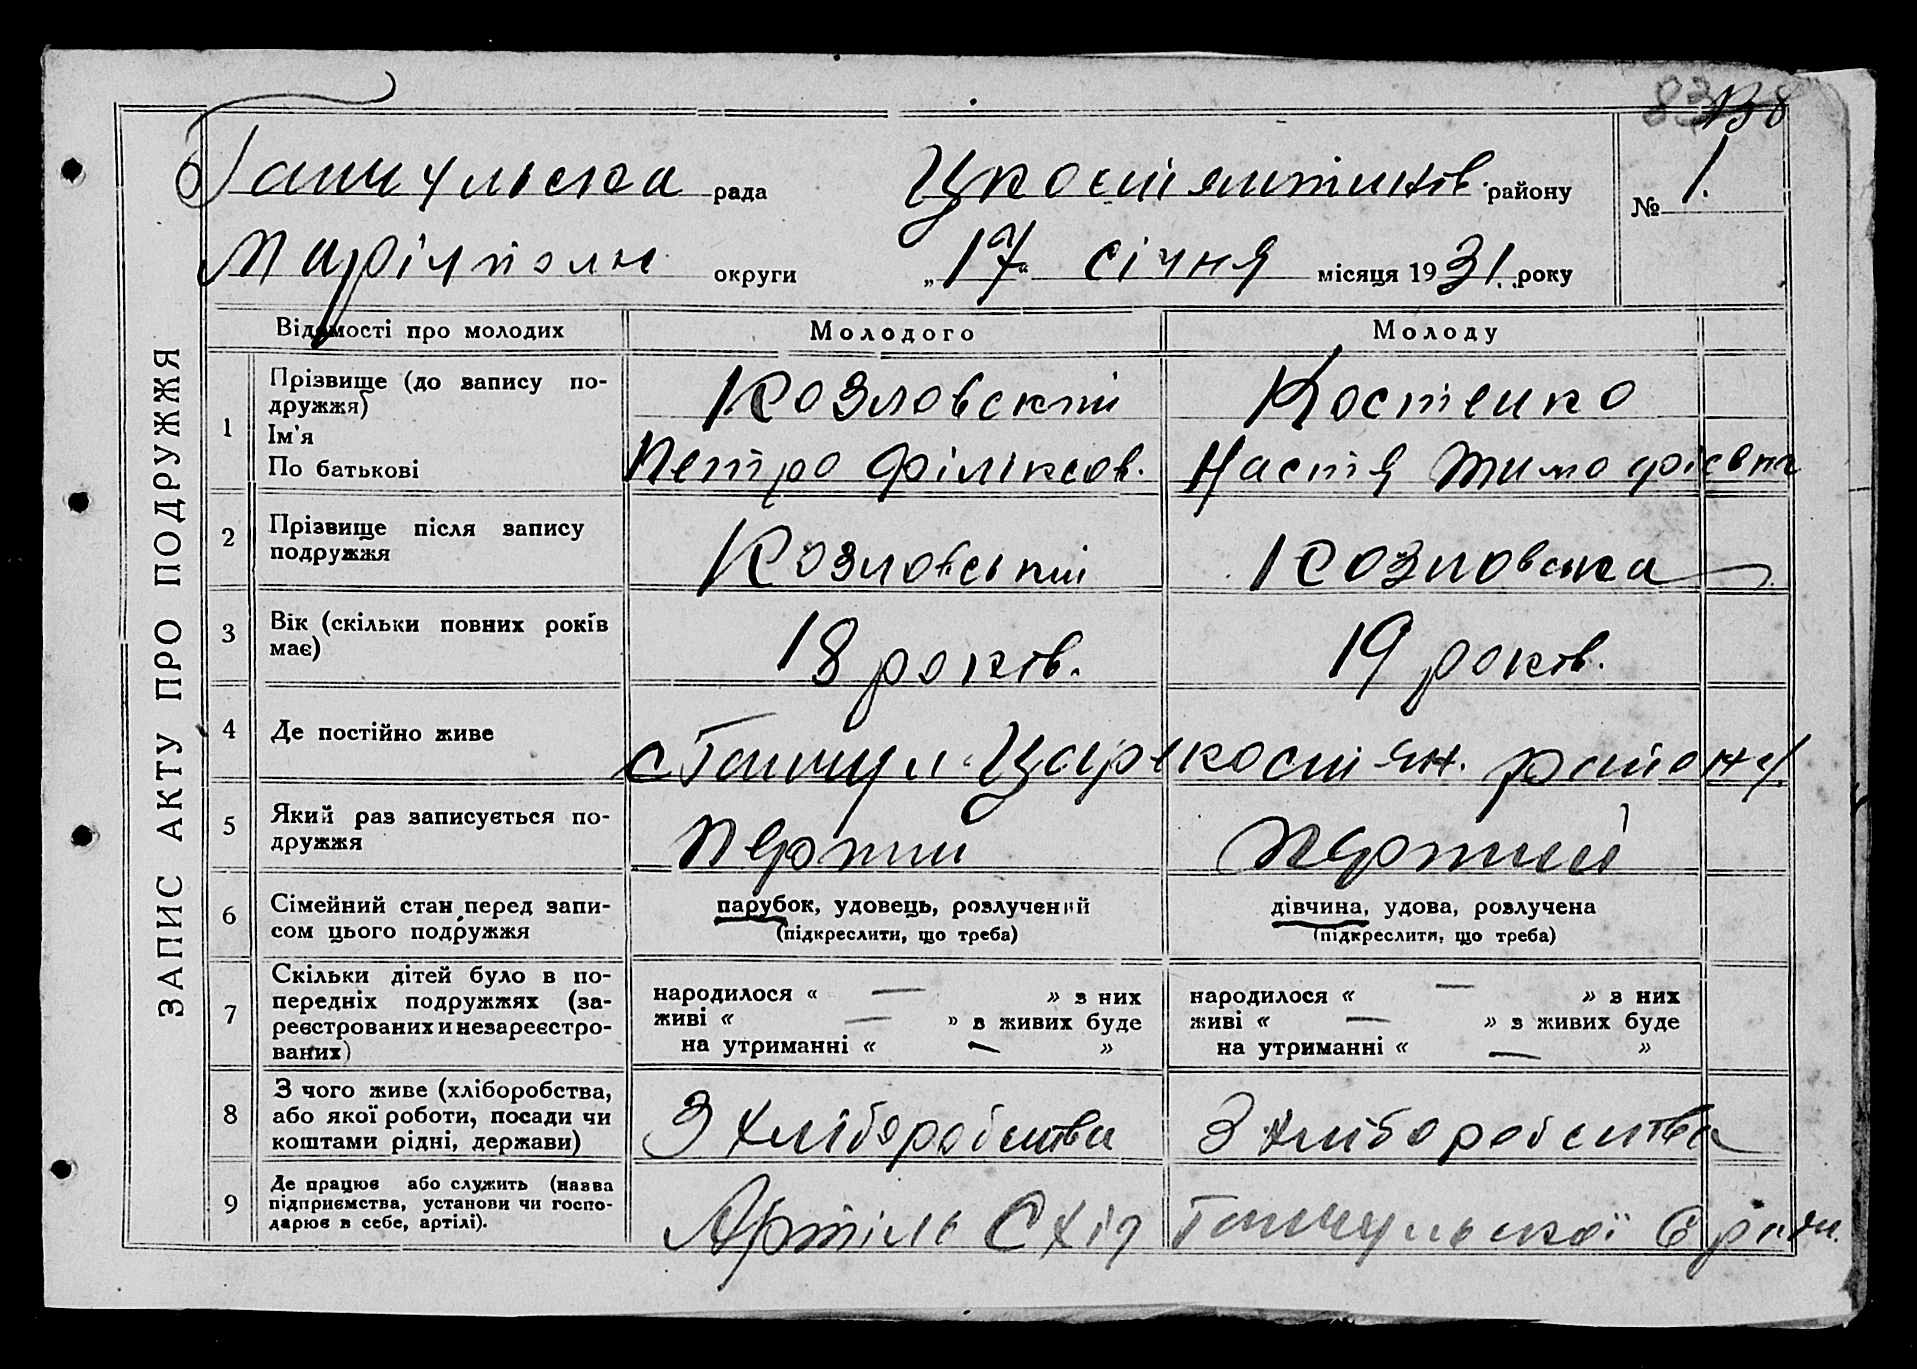 83
ЗАПИС АКТУ ПРО ПОДРУЖЖЯ
Гайчульська рада Цкостянтинів. району № 1.
Маріупольн округи „17“ січня місяця 1931. року
Відомості про молодих Молодого Молоду
1 Прізвище (до запису по-
дружжя)
Ім'я
По батькові
Козловский Костенко
Петро Філіксов. Настя Тимофієвна
2 Прізвище після запису
подружжя
Козловський Козловська
3 Вік (скільки повних років
має)
18 років. 19 років.
4 Де постійно живе с Гайчул Царекостян. району
5 Який раз записується по-
дружжя
Перший Перший
6 Сімейний стан перед запи-
сом цього подружжя
парубок, удовець, розлучений
(підкреслити, що треба)
дівчина, удова, розлучена
(підкреслити, що треба)
7 Скільки дітей було в по-
передніх подружжях (за-
реєстрованих и незареєстро-
ваних)
народилося « — » з них
живі « — » з живих буде
на утриманні « — »
народилося « — » з них
живі « — » з живих буде
на утриманні « — »
8 З чого живе (хліборобства,
або якої роботи, посади чи
коштами рідні, держави)
З хліборобства З хліборобства
9 Де працює або служить (назва
підприємства, установи чи госпо-
дарює в себе, артілі).
Артіль Схід Гайчульської с ради.